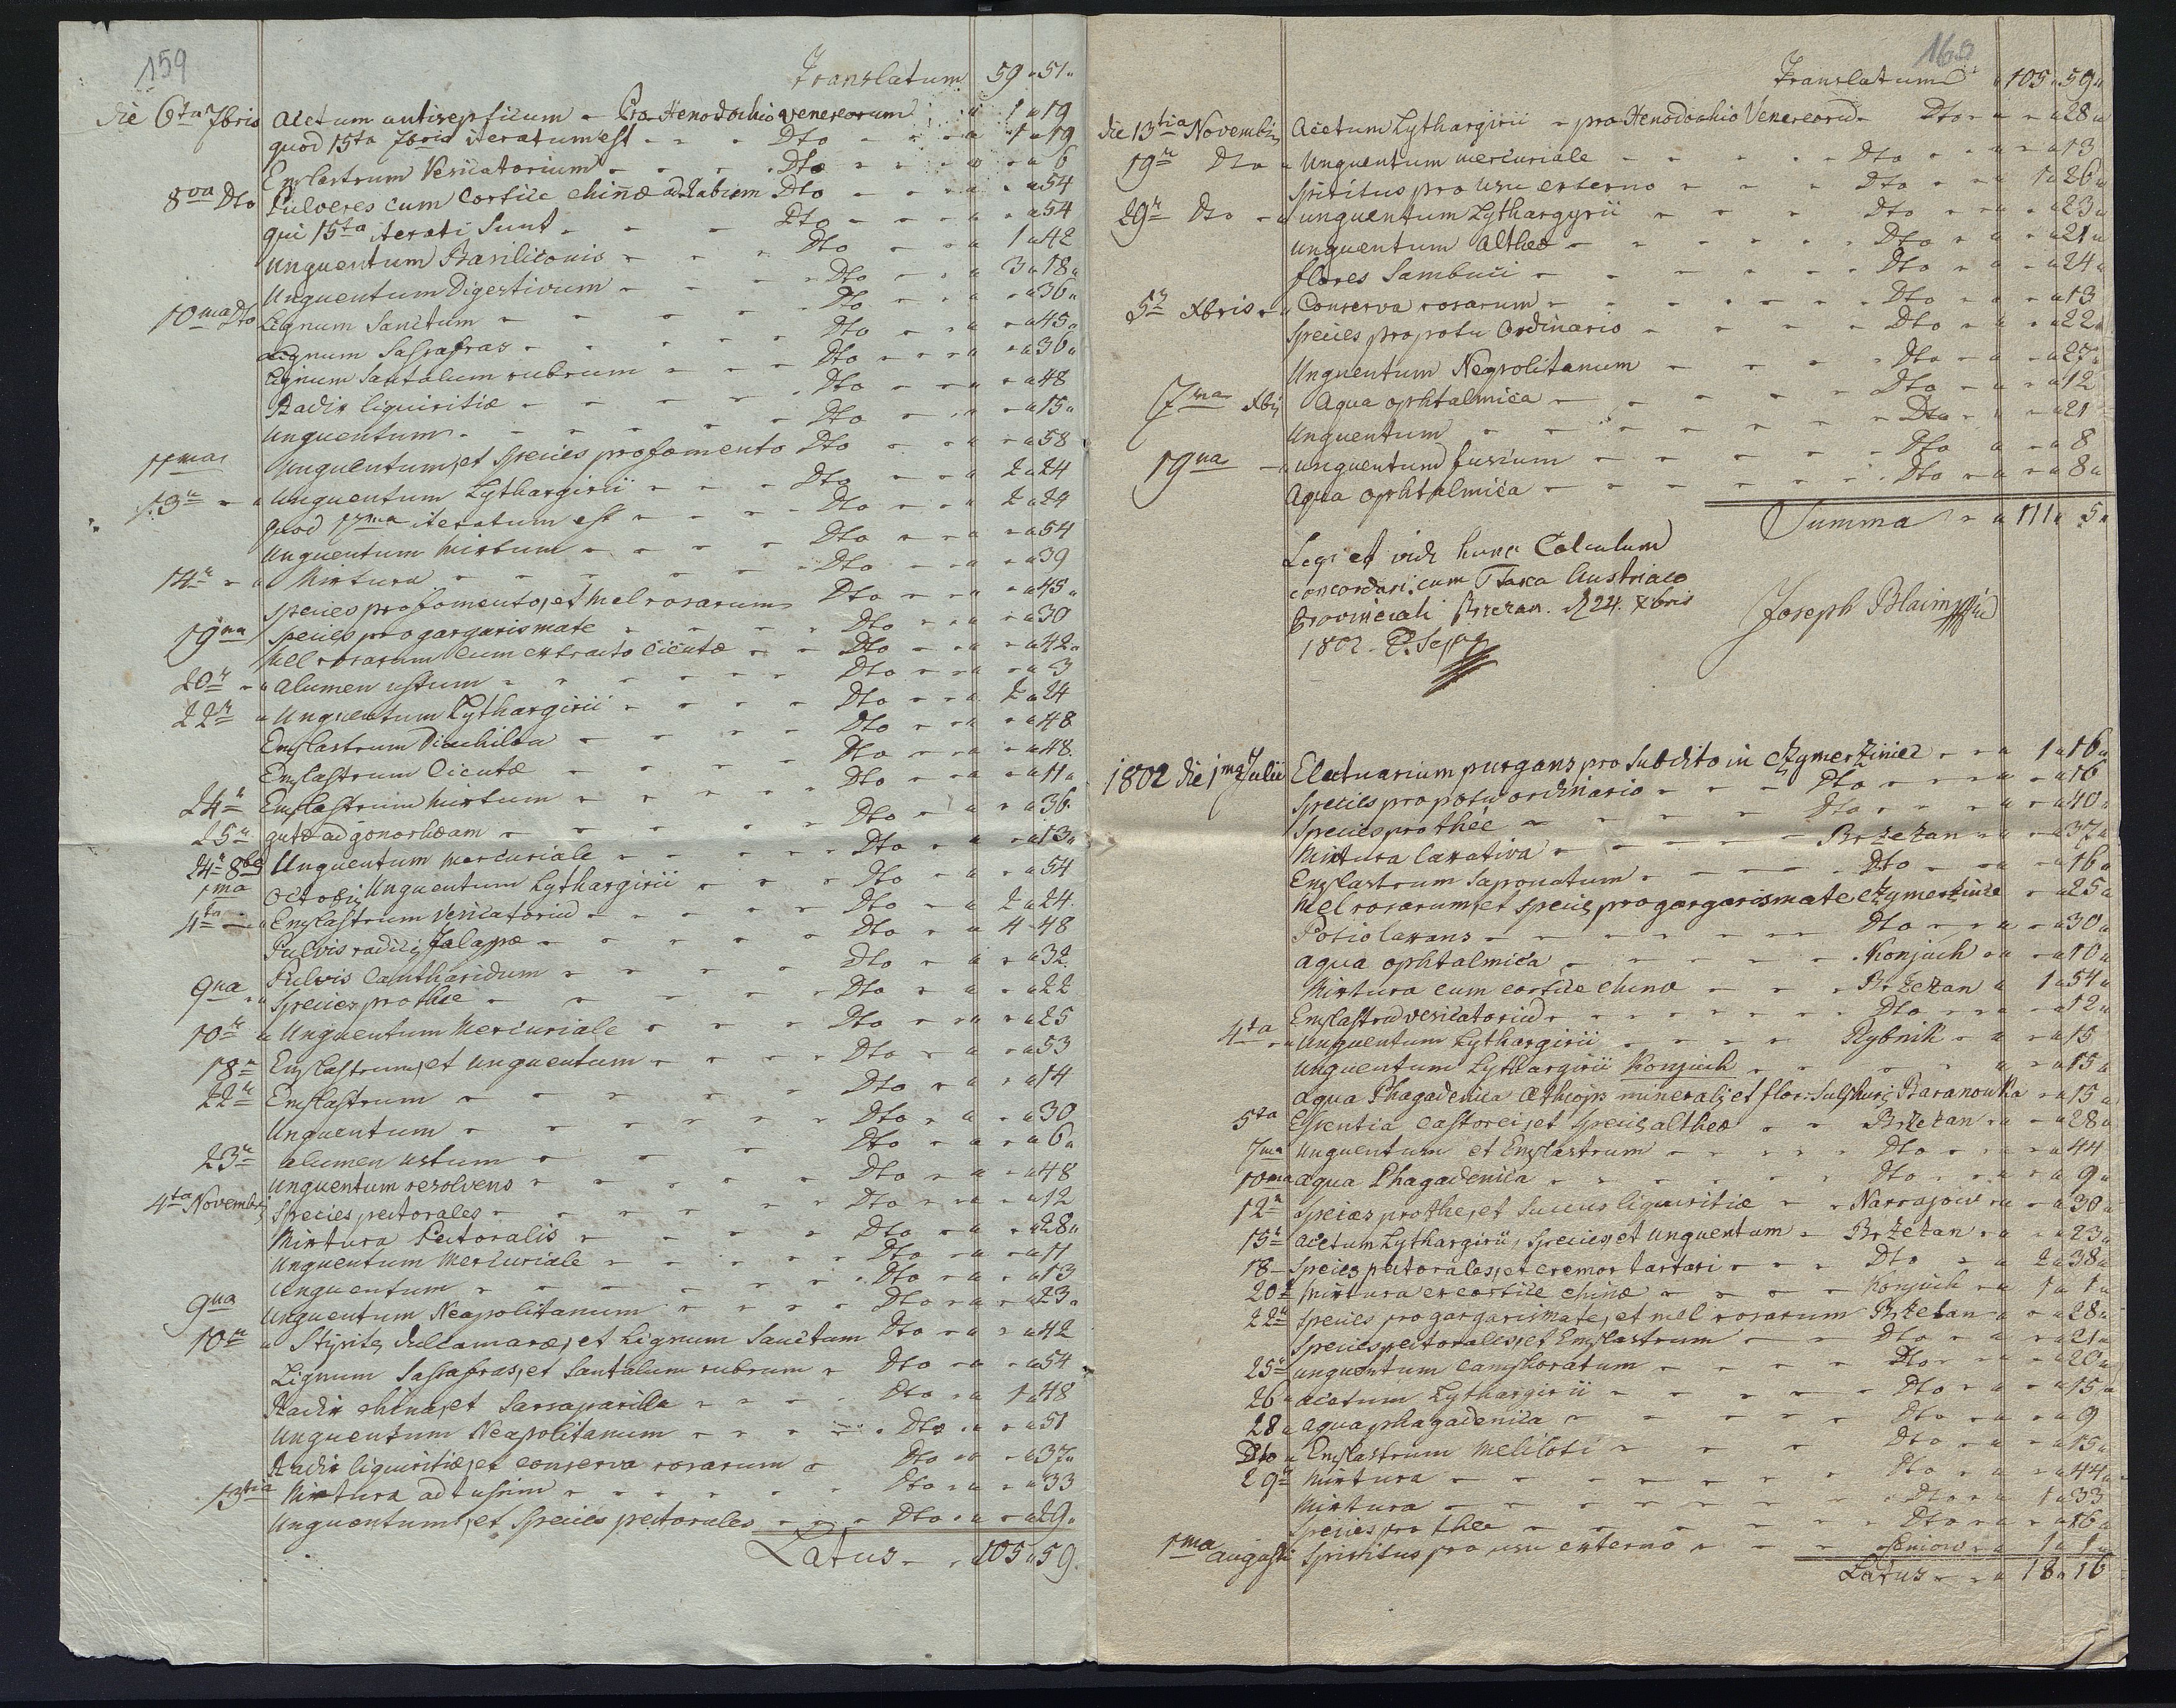 159
Translatum 59 " 51 "
die 6ta 7bris Acetum antisepticum - Pro Xenodochio venereorum " 1 " 19
quod 15ta 7bris iteratum est - - - Dto - - - " 1 " 19
Emplastrum Vesicatorium - - - Dto - - - " - " 6
8va Dto Pulveres cum Cortice chinæ ad labiem Dto - - - " - " 54
qui 15ta iterati Sunt - - - Dto - - - " - " 54
Unguentum Basiliconis - - - Dto - - " 1 " 42
Unguentum Digestivum - - - Dto - - " 3 " 18 "
10ma Dto Lignum Sanctum - - - Dto - - " - " 36 "
Lignum Saßafras - - - Dto - - " - " 45 "
Lignum Santalum rubrum - - - Dto - - " - " 36 "
Radix liquiritiæ - - - Dto - - " - " 48
Unguentum - - - Dto - - " - " 15 "
11ma Unguentum, et Species pro fomento Dto - - " - " 58
13" - " Unguentum Lythargirii - - - Dto - - " 2 " 24
quod 17ma iteratum est - - - Dto - - " 2 " 24
Unguentum mixtum - - - Dto - - " - " 54
14" - " Mixtura - - - Dto - - " - " 39
Species pro fomento, et Mel rosarum Dto - - " - " 45 "
19na Species pro gargarismate - - - Dto - - " - " 30
Mel rosarum cum extracto Cicutæ - - Dto - - " - " 42 "
20" - " Alumen ustum - - - Dto - - " - " 3
22" " Unguentum Lythargirii - - - Dto - - " 2 " 24
Emplastrum Diachilon - - - Dto - - " - " 48
Emplastrum Cicutæ - - - Dto - - " - " 48
24" Emplastrum mixtum - - - Dto - - " - " 11 "
25" gutæ ad gonorhæam - - - Dto - " - " 36
24" 8bs Unguentum mercuriale - - - Dto - " - " 13 "
1ma Octobis Unguentum Lythargirii - - - Dto - " - " 54
4ta - " Emplastrum Vesicatoriū - - - Dto - " 2 " 24
Pulvis radicis Jalappæ - - - Dto - " 4 - 48
Pulvis Cantharidum - - - Dto - " - " 32
9na - " Species pro thee - - - Dto - " - " 22
10" " Unguentum Mercuriale - - - Dto - " - " 25
18" Emplastrum, et Unguentum - - - Dto - " - " 53
22" Emplastrum - - - Dto - " - " 14
Unguentum - - - Dto - " - " 30
23" alumen ustum - - - Dto - " - " 6 "
Unguentum resolvens - - - Dto - " - " 48
4ta Novembris Species pectorales - - - Dto - " - " 12
Mixtura Pectoralis - - - Dto - " - " 28 "
Unguentum Mercuriale - - - Dto - " - " 11
Unguentum - - - Dto - " - " 13
9na Unguentum Neapolitanum - - - Dto - " - " 23 "
10" " Stipites dulcamaræ, et Lignum Sanctum Dto - " - " 42
Lignum Saßafras, et Santalum rubrum - Dto - " - " 54
Radix china, et Sarsaparilla - - - Dto - " 1 " 48
Unguentum Neapolitanum - - - Dto - " - " 51
Radix liquiritiæ, et conserva rosarum - Dto - " - " 37 "
13tia Mixtura ad tußim - - - Dto - " - " 33
Unguentum, et Species pectorales - - - Dto - " - " 29 "
Latus - - " 105 " 59
160
Translatum " 105 " 59 "
die 13tia Novembris Acetum Lythargirii - pro Xenodochio Venereorū - Dto - " - " 28 "
19" Dto - Unguentum mercuriale - - - Dto - " - " 13
Spiritus pro usu externo - - - Dto - " 1 " 26 "
29" Dto - " unguentum Lythargyrii - - - Dto - " - " 23 "
unguentum altheæ - - - Dto - " - " 21 "
flores Sambuci - - - Dto - " - " 24 "
5" Xbris - " Conserva rosarum - - - Dto - " - " 13
Species pro potu Ordinario - - - Dto - " - " 22 "
Unguentum Neapolitanum - - - Dto - " - " 27 "
7ma Xbris Aqua ophtalmica - - - Dto - " - " 12
Unguentum - - - Dto - " - " 21
19na - " unguentum fuscum - - - Dto - " - " 8
Aqua ophtalmica - - - Dto - " - " 8 "
Summa - " 111 " 5 "
Legi et vidi hunc Calculum
concordari cum Taxa Austriaco
Provinciali Brzezan. d 24. Xbris
1802
Joseph Blaim
1802 die 1ma Julii Electuarium purgans pro Subdito in Czymerzinie - - " 1 " 16 "
Species pro potu ordinario - - - Dto - - " - " 16
Species pro thèe - - - Dto - - " - " 40 "
Mixtura laxativa - - - Brzezan - " - " 37 "
Emplastrum Saponatum - - - Dto - " - " 16 "
Mel rosarum, et Species pro gargarismate Czymerzinie - " 25 "
Potio laxans - - - Dto - - " - " 30 "
aqua ophtalmica - - - Konjuch - " - " 10 "
Mixtura cum cortice chinæ - - - Brzezan " 1 " 54 "
Emplastrū vesicatoriū - - - Dto - " - " 12 "
4ta - " Unguentum Lythargirii - - - Rybnik - " - " 15
Unguentum Lythargirii Konjuch - - - " - " 15 "
aqua Phagadenica Æthiops mineralis et flor: Sulphuris Baranowka - " 15 "
5ta Eßentia Castorei, et Species altheæ - - Brzezan - " - " 28 "
7ma Unguentum et Emplastrum - - - Dto - " - " 44
10ma aqua Phagadenica - - - Dto - " - " 9 "
12" Species pro thee, et Succus liquiritiæ - - Narrajow - " - " 30 "
15" Acetum Lythargirii, Species, et Unguentum - Brzezan - " - " 23 "
18 - Species pectorales, et cremor tartari - - - Dto - " 2 " 38 "
20" Mixtura ex cortice chinæ - - - Konjuch - " 1 " 1 "
22" Species pro gargarismate, et mel rosarum Brzezan - " - " 28 "
Species pectorales, et Emplastrum - - Dto - " - " 21 "
25" unguentum camphoratum - - - Dto - " - " 20 "
26 " acetum Lythargirii - - - Dto - " - " 15 "
28 " aqua phagadenica - - - Dto - " - " 9
Dto " Emplastrum Meliloti - - - Dto - " - " 15 "
29" Mixtura - - - Dto - " - " 44 "
Mixtura - - - Dto - " 1 " 33
Species pro thee - - - Dto - " - " 16 "
1ma augusti Spiritus pro usu externo - - - " 1 " 1 "
Latus - - " 18 " 16